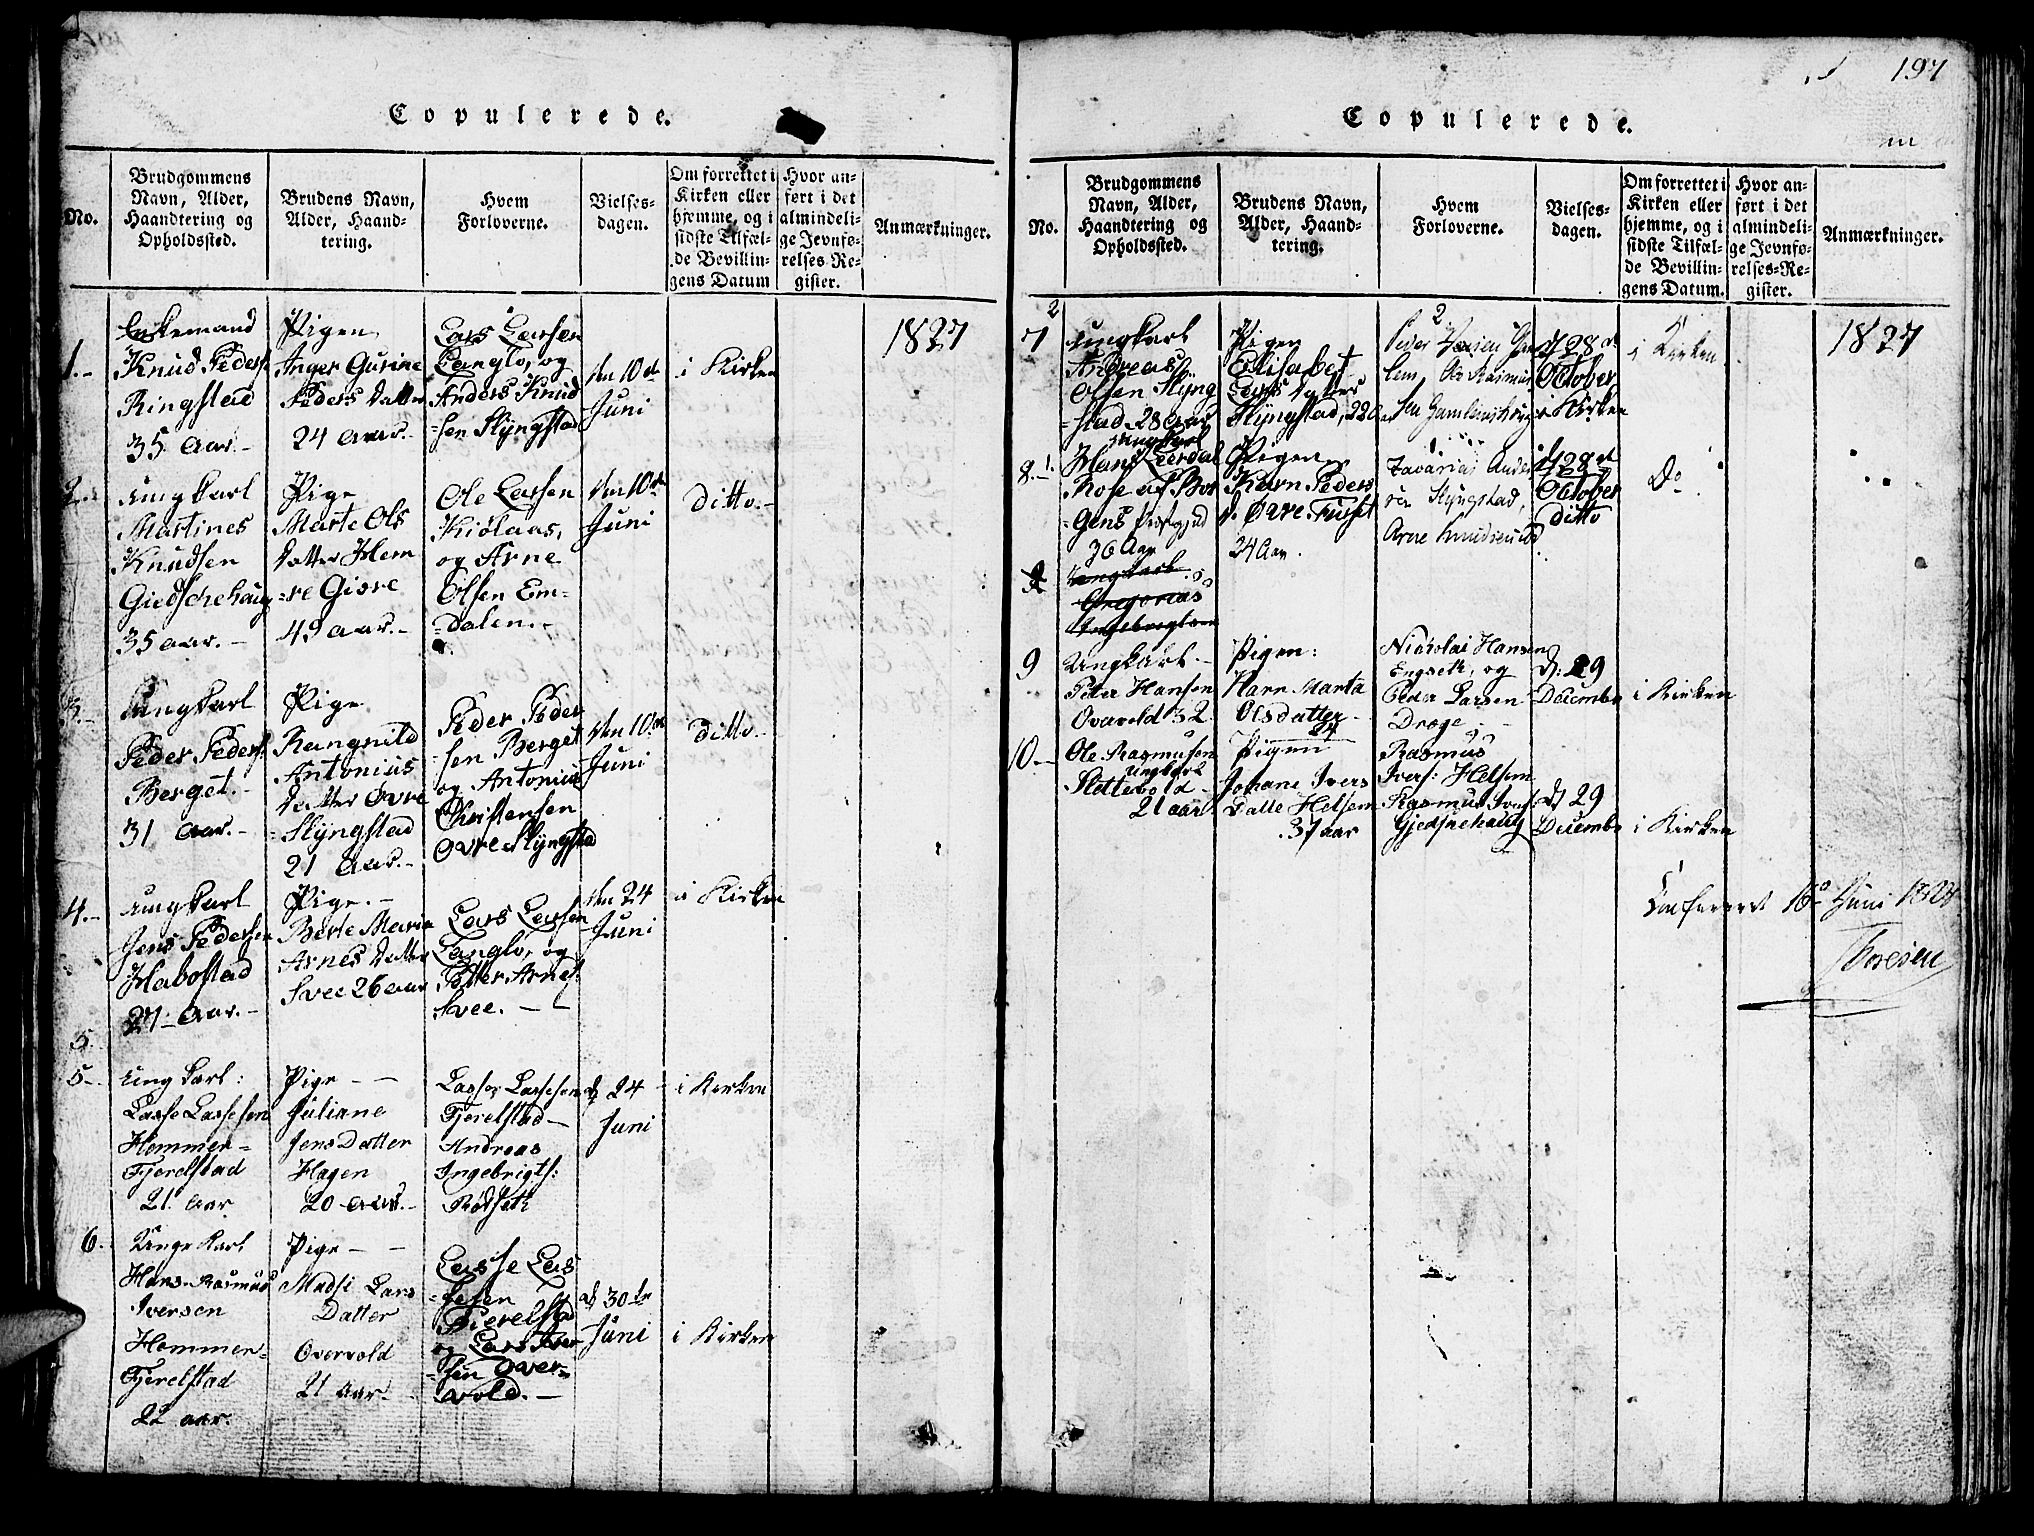 Copulerede.
No.
Brudgommens
Navn, Alder,
Haandtering og
Opholdssted.
Brudens Navn,
Alder, Haand-
tering.
Hvem
Forloverne.
Vielses-
dagen.
Om forrettet i
Kirken eller
hjemme, og i
sidste Tilfæl-
de Bevillin-
gens Datum
Hvor an-
ført i det
almindeli-
ge Jevnfø-
relses-Re-
gister.
Anmærkninger.
1827
1.-
Enkemand
Knud Peders
Ringstad
35 Aar.-
Pigen
Anger Gurine
Peders Datter
24 Aar.-
Lars Larsen
Langlo, og
Anders Knud
=sen Slyngstad
den 10de
Juni
i Kirken
2.
Ungkarl
Martines
Knudsen
Giedschehaug
35 aar.-
Pige
Marte Ols
datter Hem
=re Giøre
49 aar.-
Ole Larsen
Kiölaas,
og Arne
Olsen Em=
=dalen.-
den 10de
Juni
ditto.-
3.-
Ungkarl
Peder Peders
Berget.-
31 Aar.-
Pige
Rangnild
Antonius
Datter Øvre
=Slyngstad
21 Aar.-
Peder Peder
=sen Berget
og Antonius
Christensen
Øvre Slyngstad
den 10de
Juni
ditto.-
4.-
Ungkarl
Jens Pedersen
Habostad
27 - Aar.-
Pige.-
Berte Maria
Arnes Datter
Svee 26 aar
Lars Larsen
Langlo, og
Petter Arnes
Svee.-
den 24
Juni
i Kirken
5.
5-
Ungkarl:
Lasse Lassesen
Hemmer-
Fjerelstad
21. aar
Pige - -
Juliane
Jens Datter
Hagen
20 aar.-
Lasse Lassesen
Fjerelstad-
Andreas
Ingebrigts:
Rødseth
d 24
Juni
i Kirken
6.
Unge Karl
Hans Rasmus
Iversen
Hemmer-
Fjerelstad
22 aar.
Pige - -
Madsi Lars
Datter
Overvold
21 aar.
Lasse Las
=sesen
Fierelstad
og Lars Iver
=sen Over=
=vold.-
d 30te
Juni
i Kirken
197
Copulerede.
No.
Brudgommens
Navn, Alder,
Haandtering og
Opholdssted.
Brudens Navn,
Alder, Haand-
tering.
Hvem
Forloverne.
Vielses-
dagen.
Om forrettet i
Kirken eller
hjemme, og i
sidste Tilfæl-
de Bevillin-
gens Datum.
Hvor an-
ført i det
almindeli-
ge Jevnfø-
relses-Re-
gister.
Anmærkninger.
1827
7
Ungkarl
Andreas
Olsen Slyng
=stad 28 Aar
Pigen
Elisabet
Lars Datter
Slyngstad, 22
Peder
Ole Rasmus
sen
d 28de
October
i Kirken
i Kirken
8.
Ungkarl
Hans Leerdal
Rose af Bor
=gens
36 Aar
Pigen
Karn Peders
d. Øvre Fusset
24 Aar.
Zacarias Ander
sen Slyngstad,
Arne Knudsen
d 28de
October
ditto
Do
Ungkarl
Gregorius
Ingebrigtsen
9
Ungkarl.-
Peter Hansen
Overvold 32
Pigen:
Karn Marta
Olsdatter
24
Nicholai Hansen
Engseth, og
Peder Larsen
Drage.-
d: 29
December
i Kirken
10.-
Ole Rasmusen
Ungkarl
Slettevold-
21 aar
Pigen
Johane Ivers
Datte Helsem
37 aar
Rasmus
Ivers: Helsem
Rasmus Ivers
Gjedschehaug
d 29
December
i Kirken
Confereret 16de Juni 1828
Thoresen